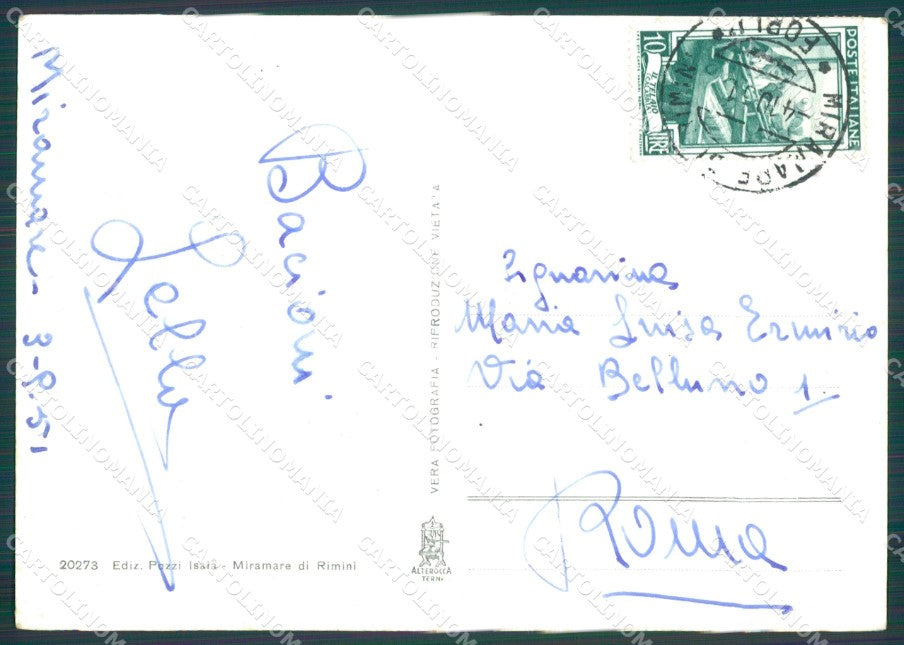 Miramare - 3-8.51
Bacioni
Lelly
20273 Ediz. Pozzi Isaia - Miramare di Rimini
VERA FOTOGRAFIA - RIPRODUZIONE VIETATA
ALTEROCCA
TERNI
POSTE ITALIANE
10
LIRE
IL TELAIO
MIRAMARE
FORLI
Signorina
Maria Luisa Erminio
Via Belluno 1
Roma
CARTOLINOMANIA